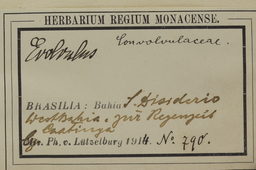 HERBARIUM REGIUM MONACENSE.
Convolvulaceae.
Evolvulus
BRASILIA: Bahia S. Disiderio
Westbahia, zur Regenzeit
Caatinga
Lgn. Ph. v. Lützelburg 1914. No. 290.